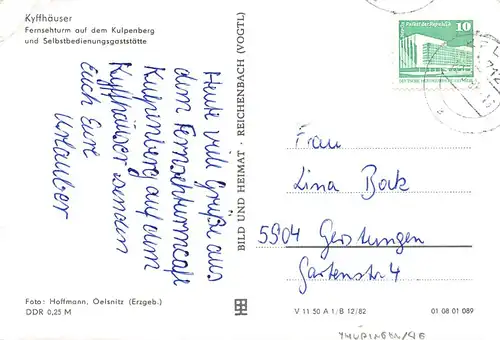 Kyffhäuser
Fernsehturm auf dem Kulpenberg
und Selbstbedienungsgaststätte
Heute viele Grüße aus
dem Fernsehturmcafe
Kulpenberg auf dem
Kyffhäuser senden
Euch Eure
Urlauber
Foto: Hoffmann, Oelsnitz (Erzgeb.)
DDR 0,25 M
BILD UND HEIMAT · REICHENBACH (VOGTL)
10
Palast der Republik
Frau
Lina Bock
5904 Gerstungen
Gartenstr 4
V 11 50 A 1/B 12/82
01 08 01 089
THÜRINGEN/